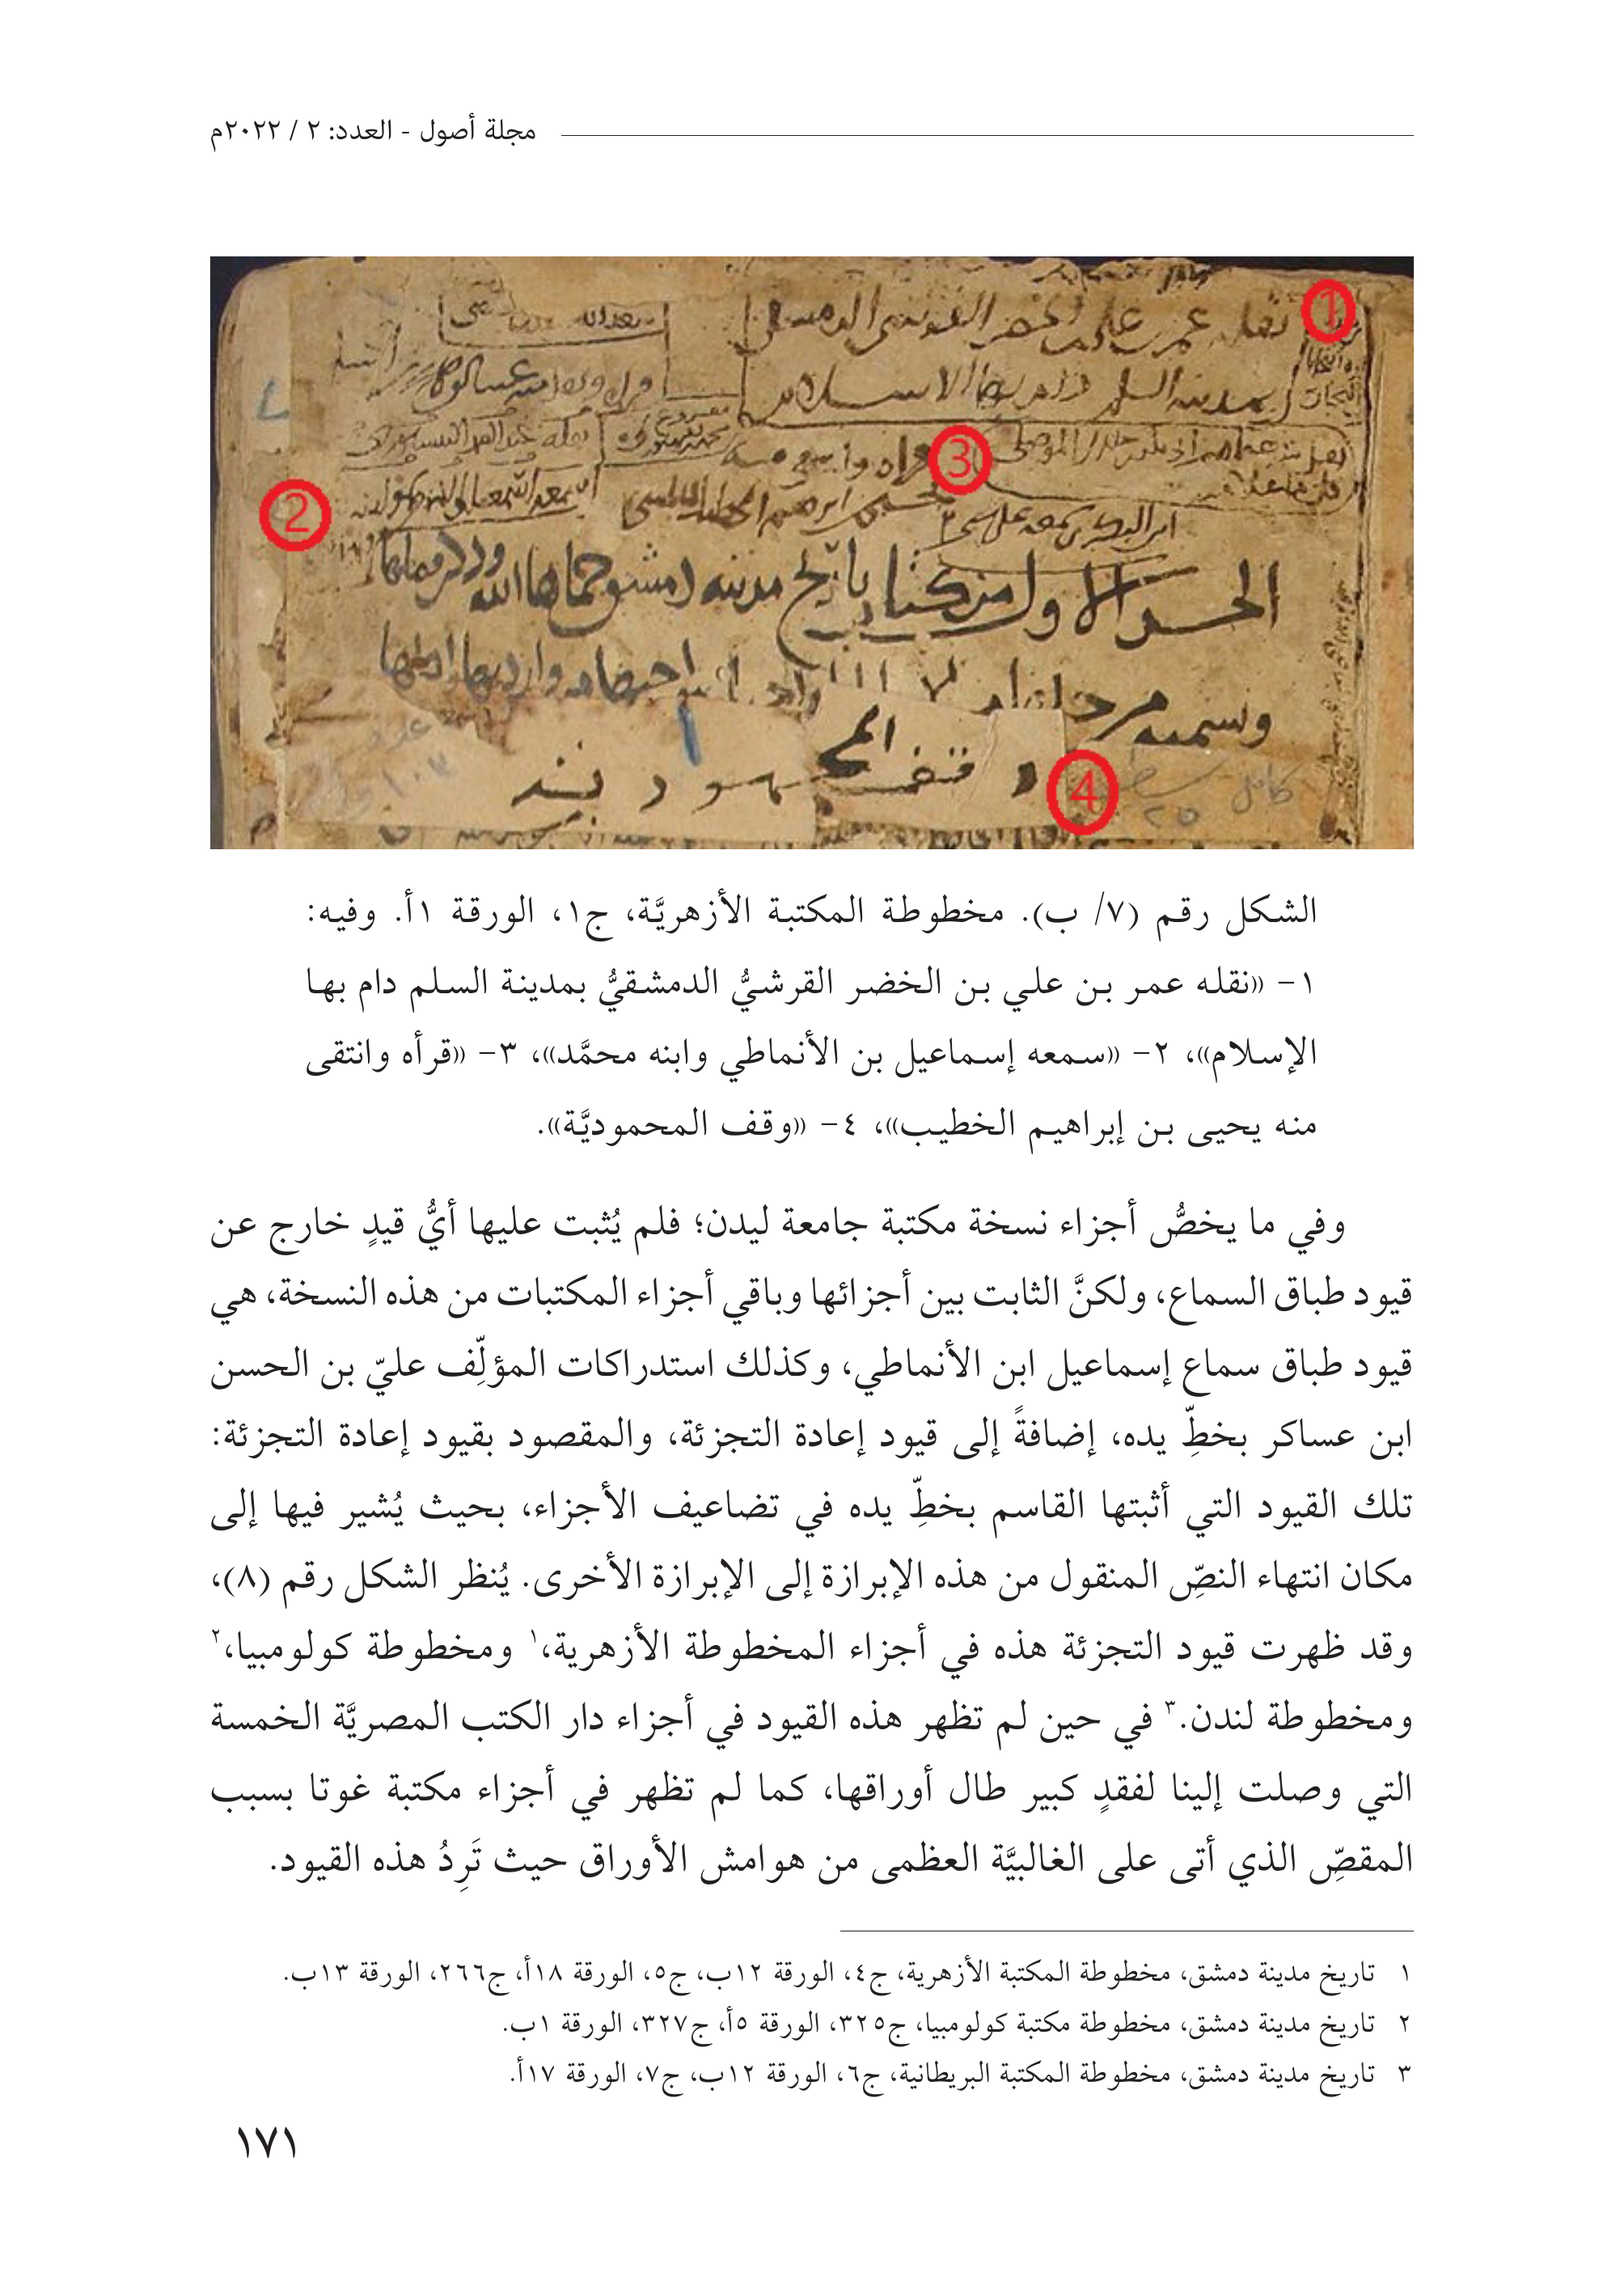 مجلة أصول - العدد: ٢ / ٢٠٢٢م
1
2
3
4
الشكل رقم (٧/ ب). مخطوطة المكتبة الأزهريَّة، ج١، الورقة ١أ. وفيه:
١- «نقله عمر بن علي بن الخضر القرشيُّ الدمشقيُّ بمدينة السلم دام بها
الإسلام»، ٢- «سمعه إسماعيل بن الأنماطي وابنه محمَّد»، ٣- «قرأه وانتقى
منه يحيى بن إبراهيم الخطيب»، ٤- «وقف المحموديَّة».
وفي ما يخصُّ أجزاء نسخة مكتبة جامعة ليدن؛ فلم يُثبت عليها أيُّ قيدٍ خارج عن
قيود طباق السماع، ولكنَّ الثابت بين أجزائها وباقي أجزاء المكتبات من هذه النسخة، هي
قيود طباق سماع إسماعيل ابن الأنماطي، وكذلك استدراكات المؤلِّف عليّ بن الحسن
ابن عساكر بخطِّ يده، إضافةً إلى قيود إعادة التجزئة، والمقصود بقيود إعادة التجزئة:
تلك القيود التي أثبتها القاسم بخطِّ يده في تضاعيف الأجزاء، بحيث يُشير فيها إلى
مكان انتهاء النصِّ المنقول من هذه الإبرازة إلى الإبرازة الأخرى. يُنظر الشكل رقم (٨)،
وقد ظهرت قيود التجزئة هذه في أجزاء المخطوطة الأزهرية،١ ومخطوطة كولومبيا،٢
ومخطوطة لندن.٣ في حين لم تظهر هذه القيود في أجزاء دار الكتب المصريَّة الخمسة
التي وصلت إلينا لفقدٍ كبير طال أوراقها، كما لم تظهر في أجزاء مكتبة غوتا بسبب
المقصِّ الذي أتى على الغالبيَّة العظمى من هوامش الأوراق حيث تَرِدُ هذه القيود.
١ تاريخ مدينة دمشق، مخطوطة المكتبة الأزهرية، ج٤، الورقة ١٢ب، ج٥، الورقة ١٨أ، ج٢٦٦، الورقة ١٣ب.
٢ تاريخ مدينة دمشق، مخطوطة مكتبة كولومبيا، ج٣٢٥، الورقة ٥أ، ج٣٢٧، الورقة ١ب.
٣ تاريخ مدينة دمشق، مخطوطة المكتبة البريطانية، ج٦، الورقة ١٢ب، ج٧، الورقة ١٧أ.
١٧١